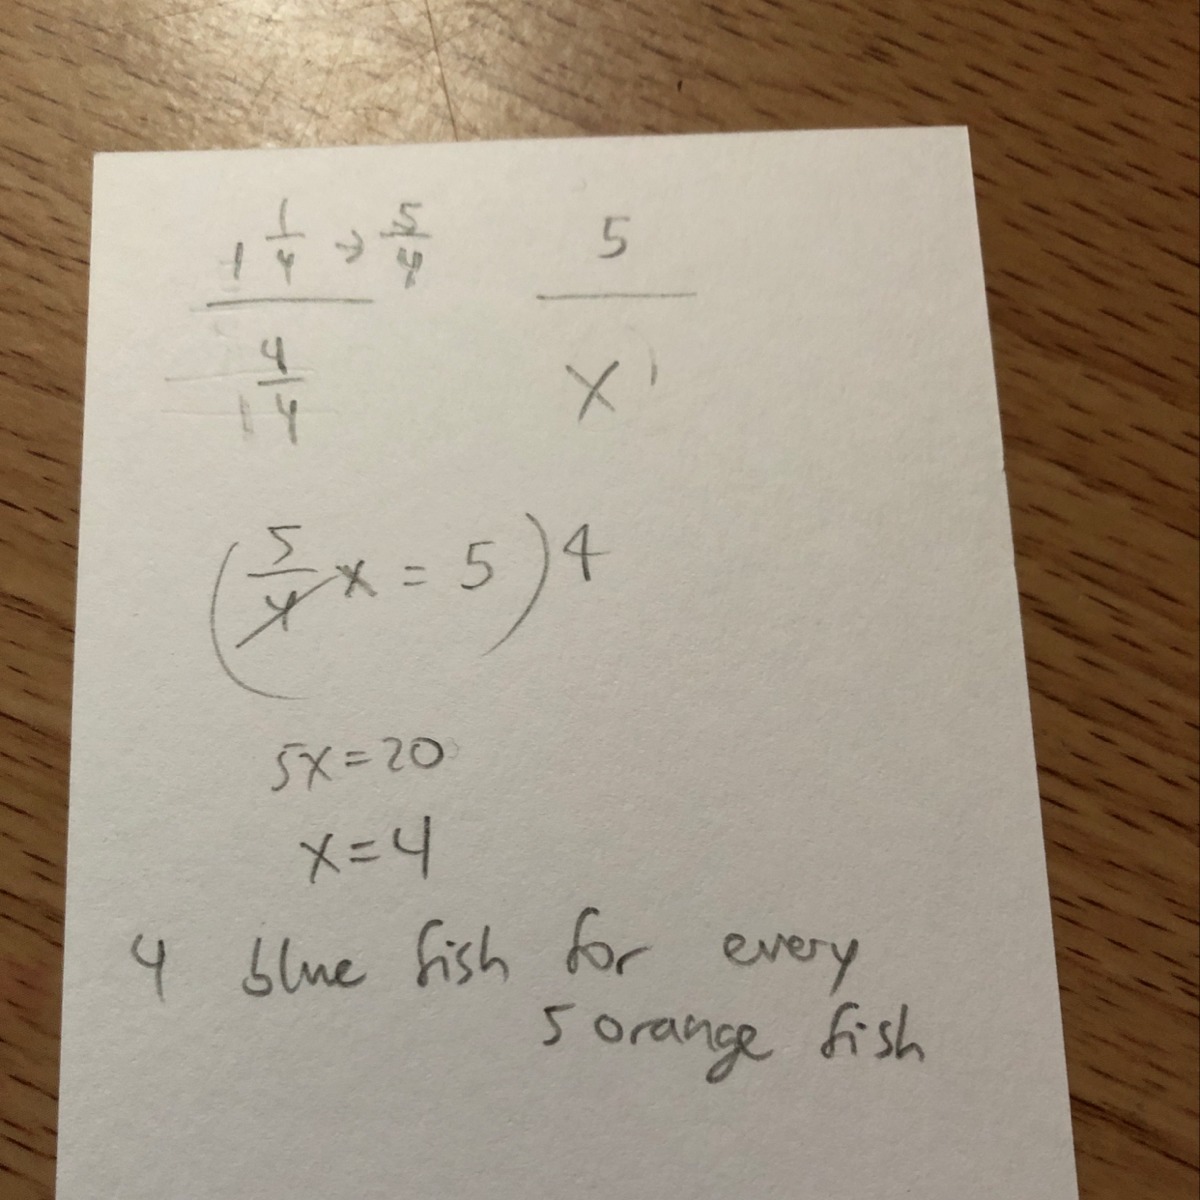 1 1/4 → 5/4    5
4/4    x
(5/4 x = 5) 4
5x = 20
x = 4
4 blue fish for every
5 orange fish